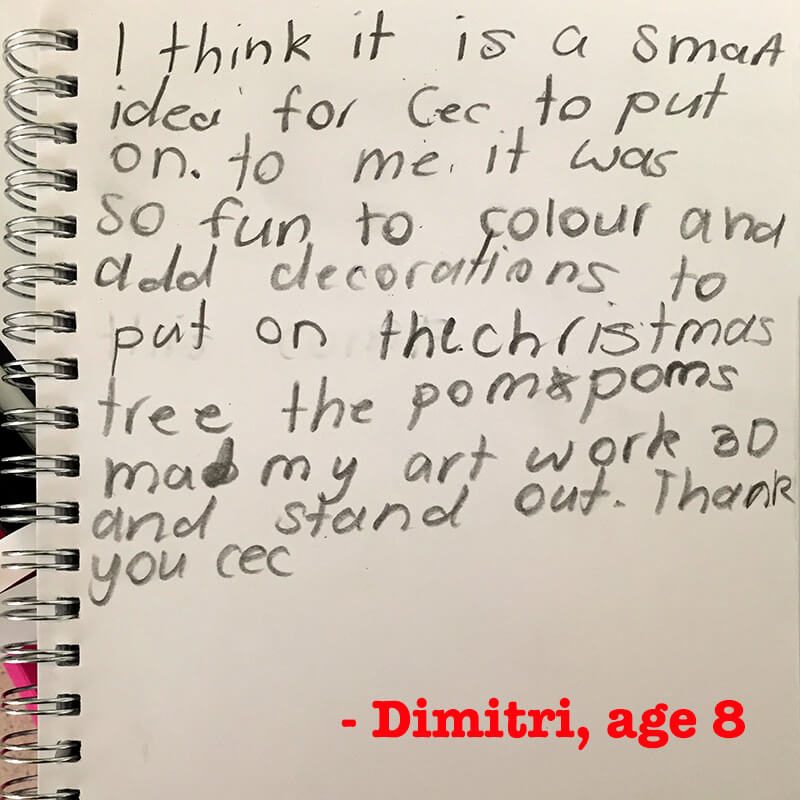 I think it is a smart
idea for Cec to put
on. to me. it was
so fun to colour and
add decorations to
put on the christmas
tree the pom poms
mad my art work 3D
and stand out. Thank
you cec
- Dimitri, age 8